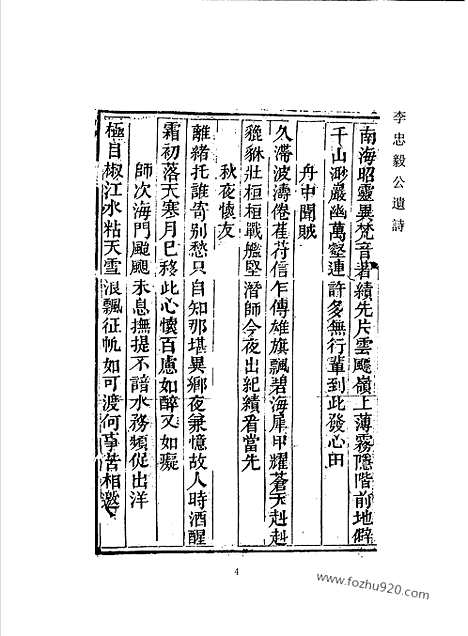 李忠毅公遺詩
南海昭靈異梵音著績先片雲飈嶺上薄霧隱階前地僻
千山渺巖幽萬壑連許多無行輩到此發心田
舟中聞賊
久滯波濤倦萑苻信乍傳雄旗飄碧海犀甲耀蒼天赳赳
貔貅壯桓桓戰艦堅潛師今夜出紀績看當先
秋夜懷友
離緒托誰寄別愁只自知那堪異鄉夜兼憶故人時酒醒
霜初落天寒月已移此心懷百慮如醉又如癡
師次海門颱颶未息撫提不諳水務頻促出洋
極目椒江水粘天雪浪飄征帆如可渡何事苦相邀
4
www.fozhu920.com